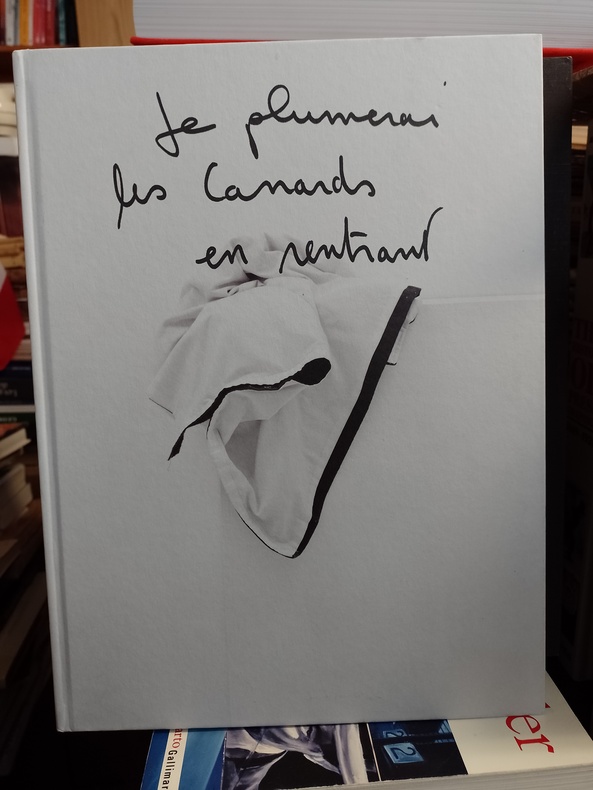 Je plumerai
les Canards
en rentrant
arto Gallimar
ler
2